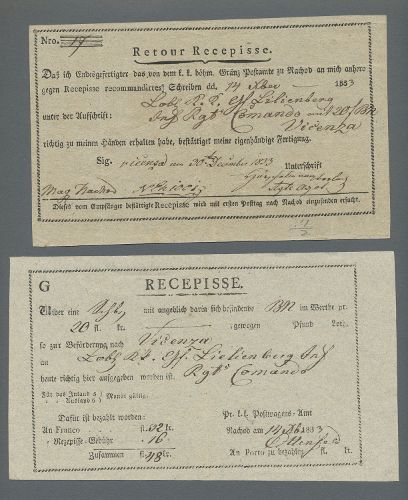 Nro. 17
Retour Recepisse.
Daß ich Endesgefertigter das von dem k. k. böhm. Gränz Postamte zu Nachod an mich anhero
gegen Recepisse rekommandirte Schreiben dd. 14 Xber 1833
Lobl K. K. Lilienberg
unter der Aufschrift: Inf Rgts Comando mit 20 f BN
Vicenza
richtig zu meinen Händen erhalten habe, bestättiget meine eigenhändige Fertigung.
Sig. vicenza am 20t Dezember 1833 Unterschrift
Nachod
Dieses vom Empfänger bestättigte Recepisse wird mit ersten Posttag nach Nachod einzusenden ersucht.
G RECEPISSE.
Ueber eine mit angeblich darin sich befindende BN im Werthe pr.
20 fl. kr. gewogen Pfund Loth.
so zur Beförderung nach Vicenza
an Lobl Lielienberg Inf
heute richtig hier aufgegeben worden ist. Rgts Comando
Für das Inland 3 / Ausland 6 Monat gültig.
Dafür ist bezahlt worden: Pr. k. k. Postwagens-Amt
An Franco fl. 32 kr. Nachod am 14 Xb 1833
» Rezepisse-Gebühr » 16 »
Zusammen fl. 48 kr. An Porto zu bezahlen fl. kr.